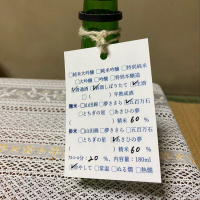 □純米大吟醸 □純米吟醸 □特別純米
□大吟醸 □吟醸 □特別本醸造
☑普通酒 ☑新しぼりたて ☑生酒
□( )年熟成酒
麹米・□山田錦 □夢ささら ☑五百万石
□とちぎの星 □あさひの夢
☑( )精米 60 %
掛米・□山田錦 □夢ささら □五百万石
□とちぎの星 ☑あさひの夢
□( )精米 60 %
アルコール分: 20 %、内容量:180ml
☑冷やして □常温 □ぬる燗 □熱燗